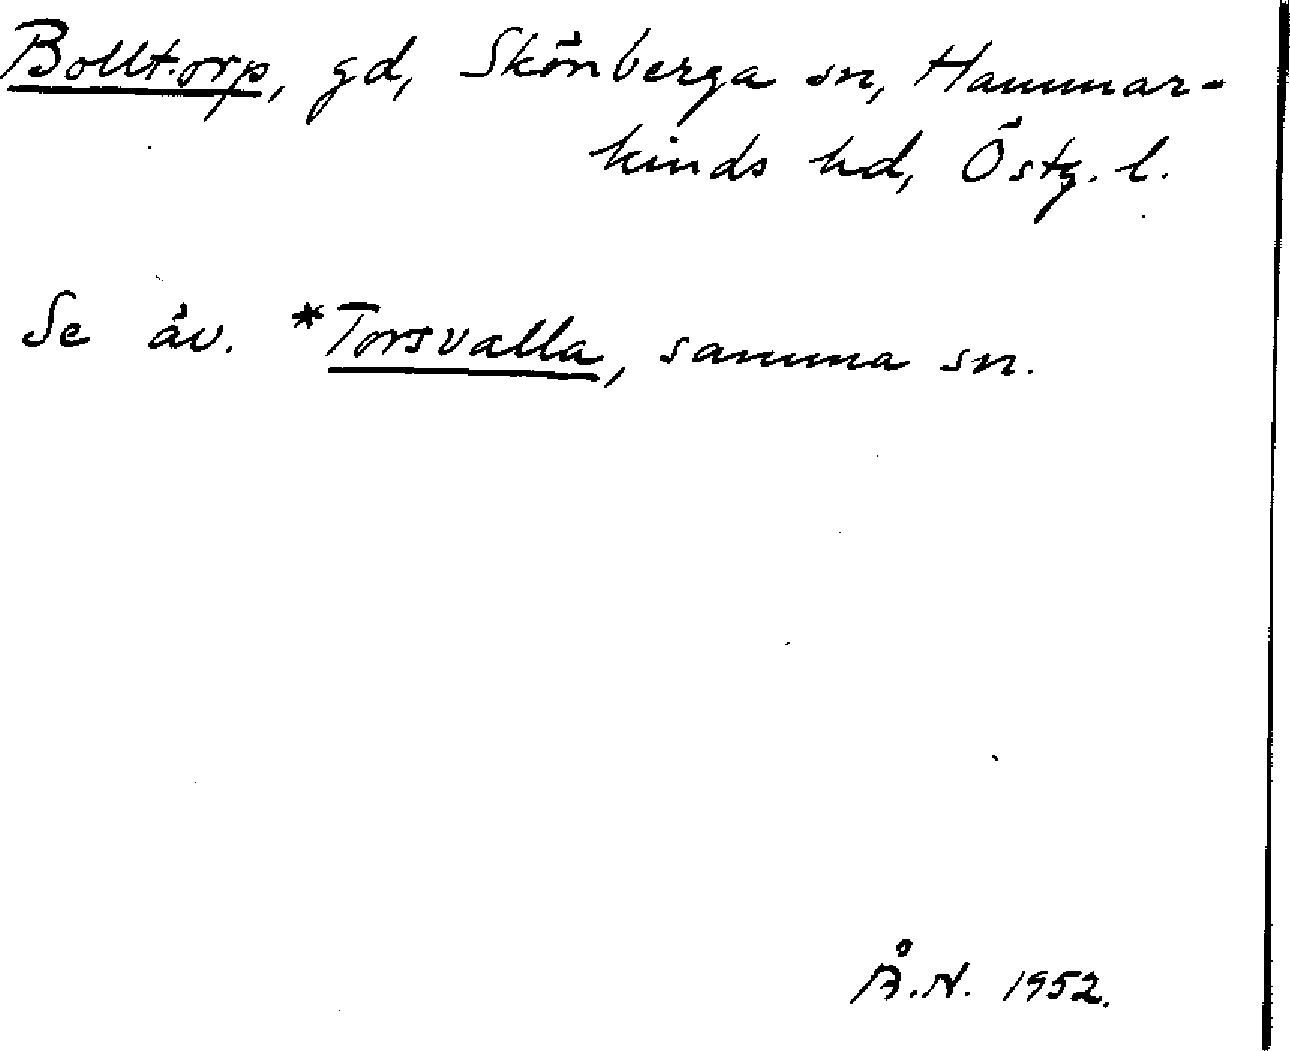 Bolltorp, gd, Skönberga sn, Hammar-
kinds hd, Östg. l.
Se äv. *Torsvalla, samma sn.
Å.N. 1952.